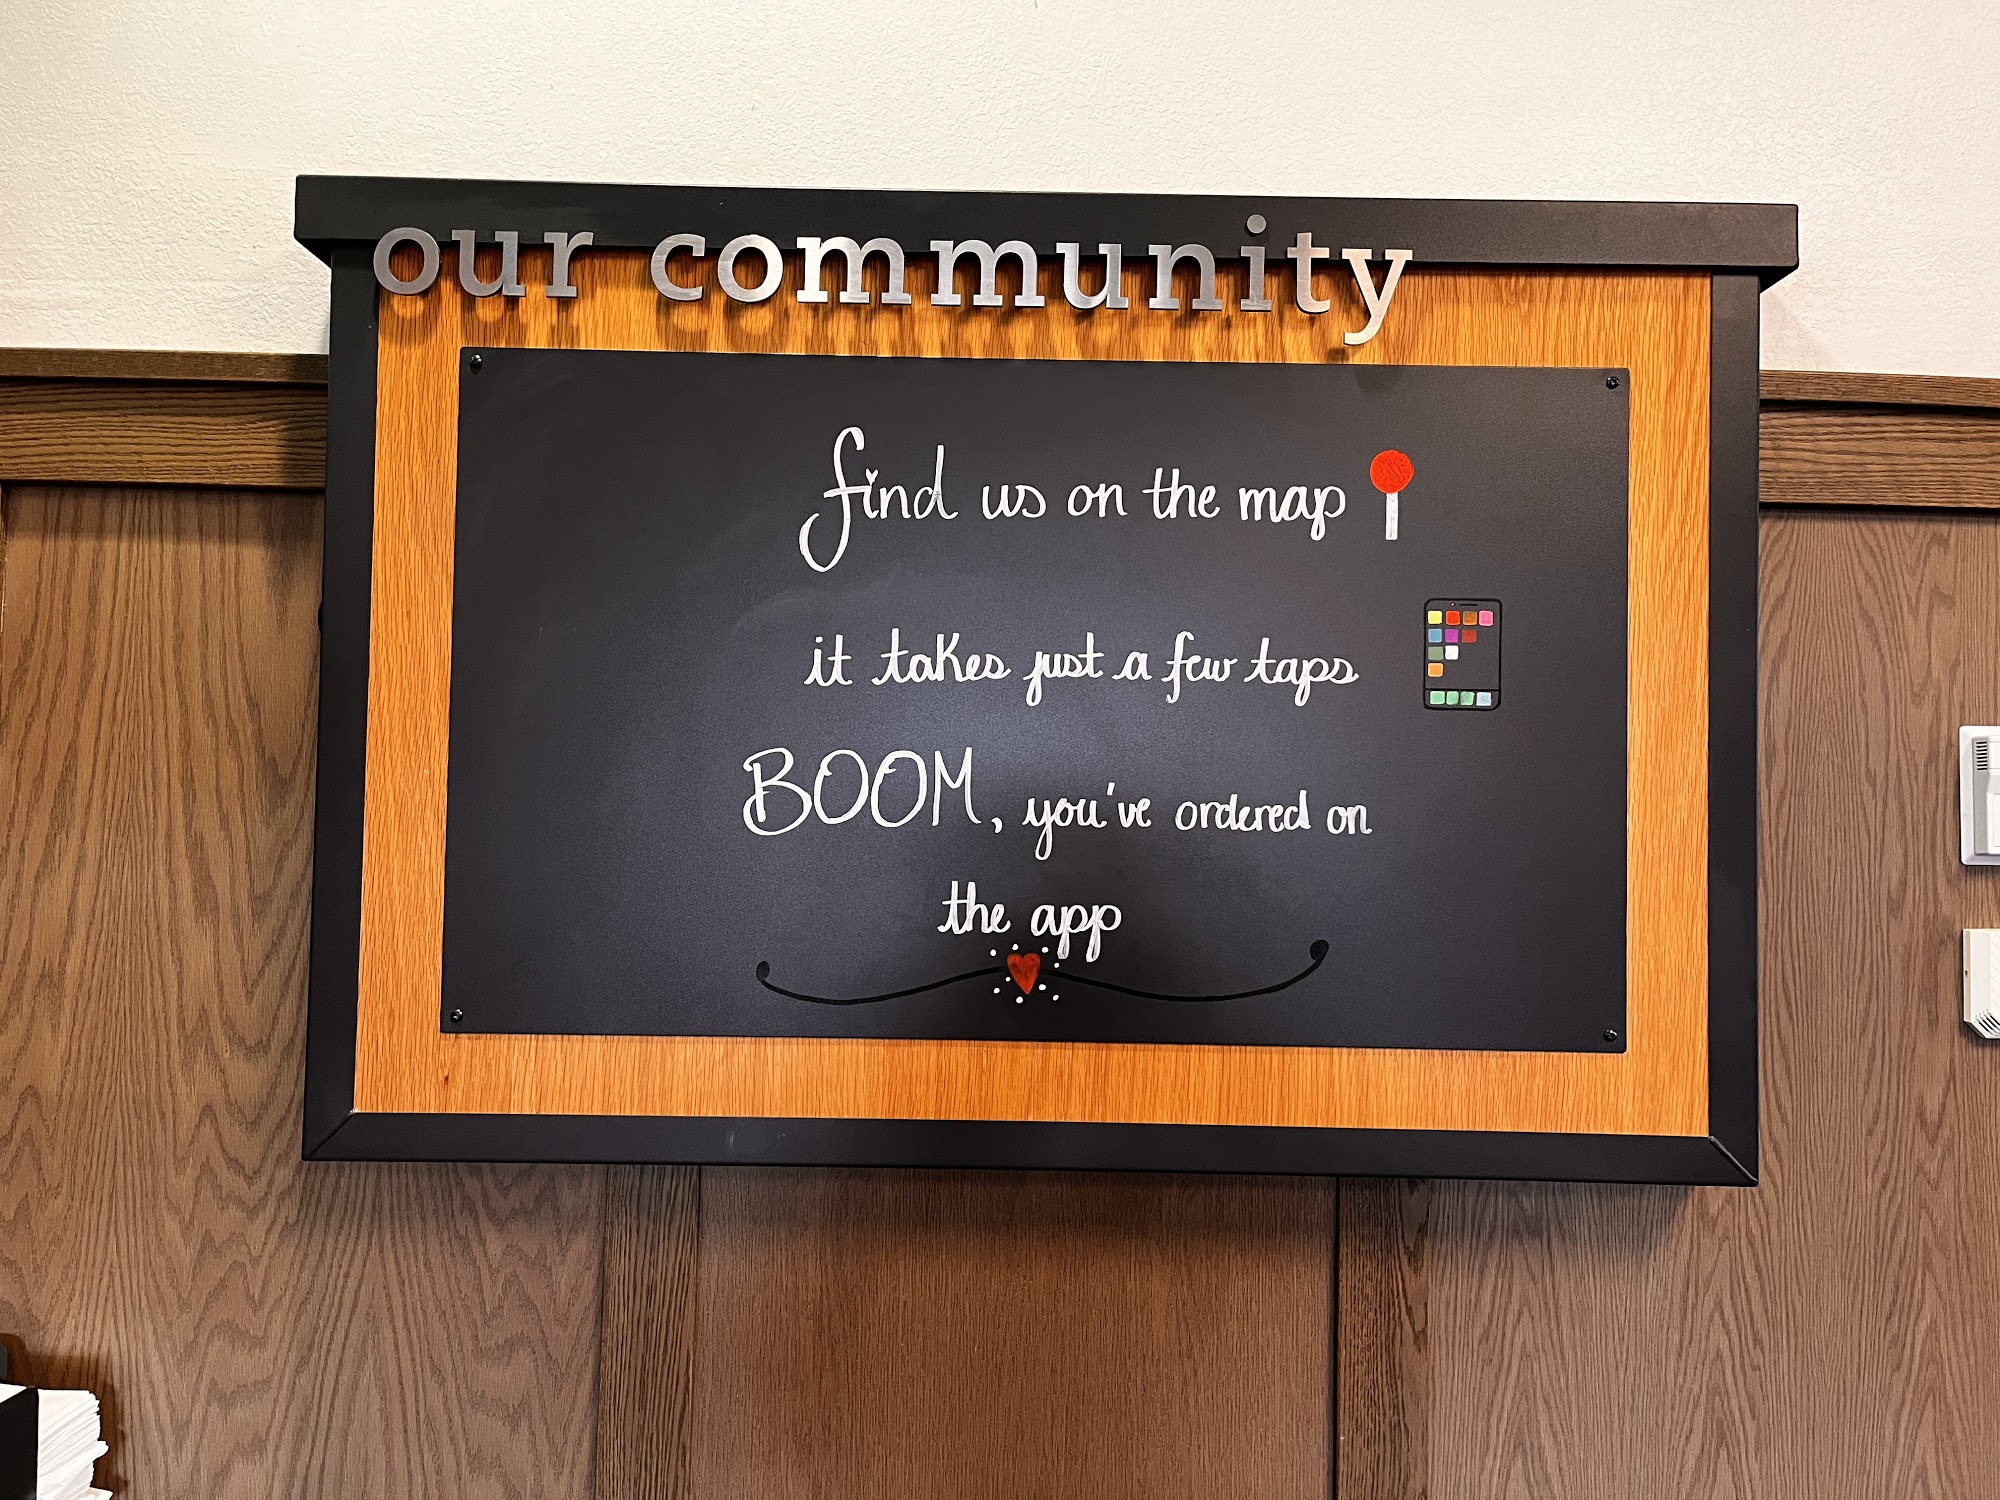 our community
find us on the map
it takes just a few taps
BOOM, you've ordered on
the app